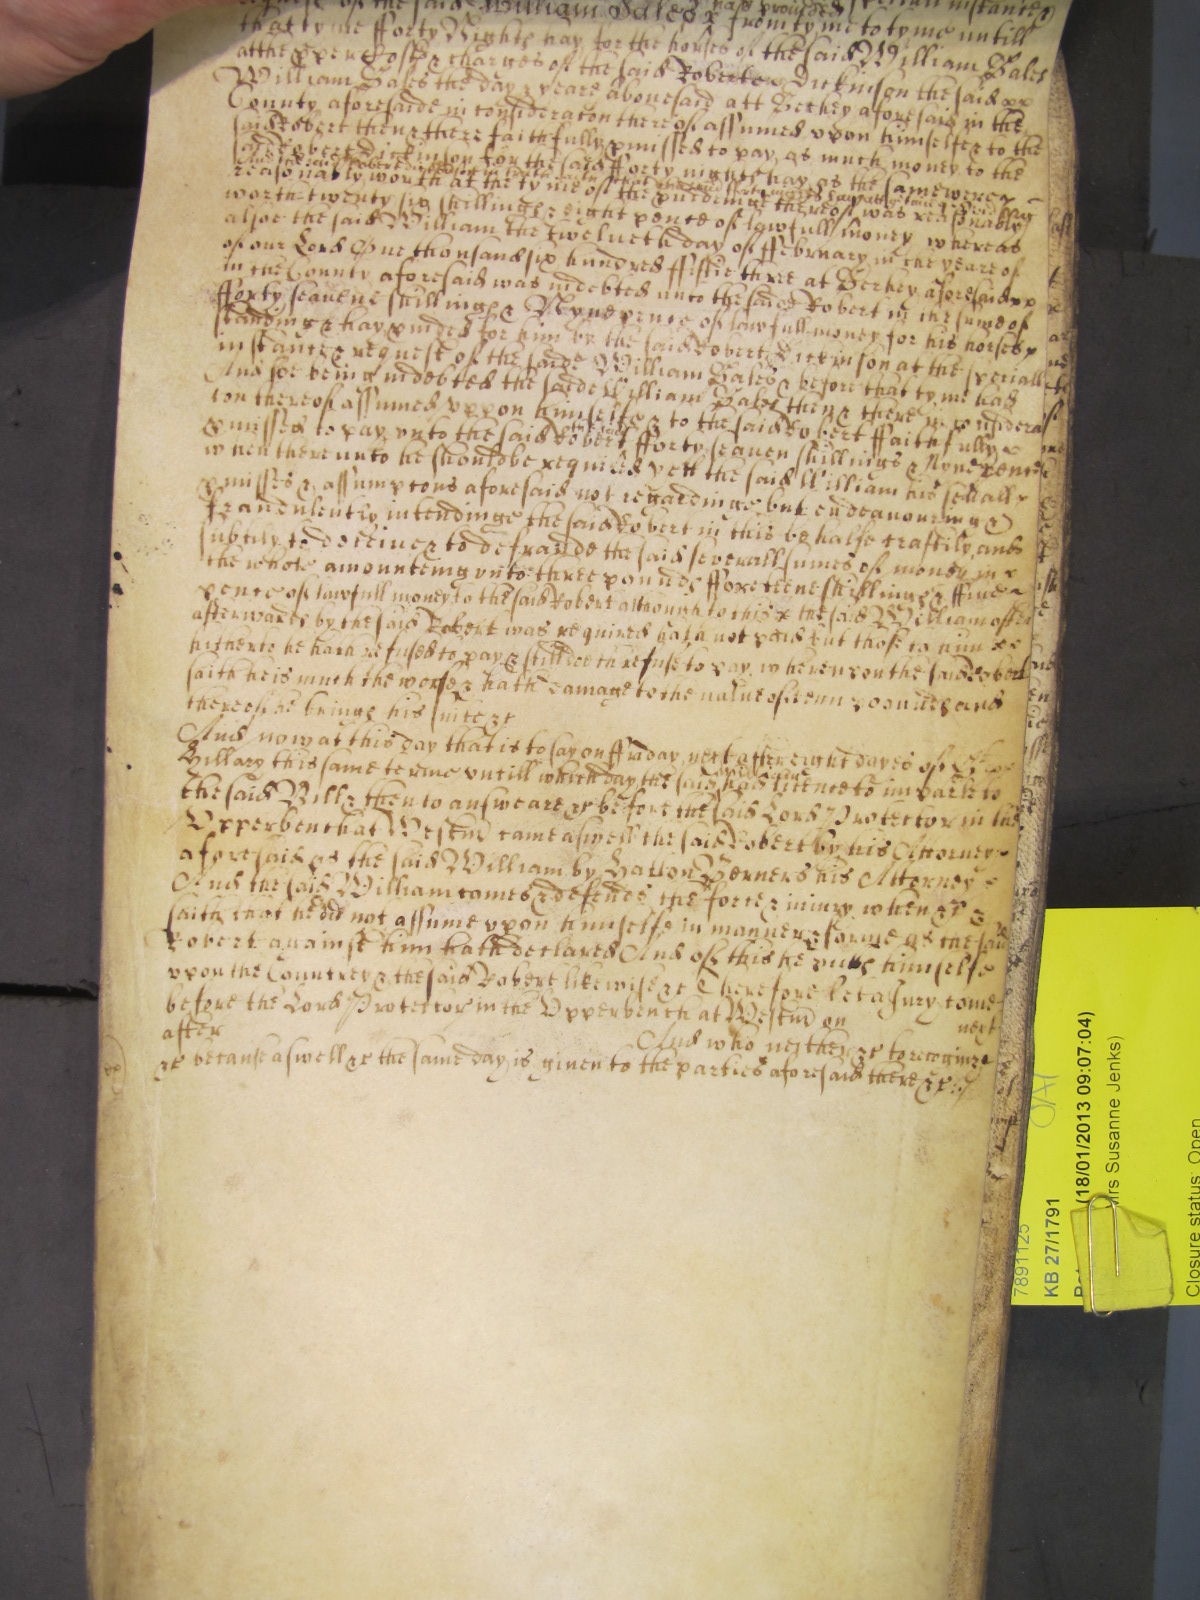 request of the said William Bales & had provided instance
that tyme fforty Nights hay for the horses of the said William Bales from tyme to tyme untill
atthe proper Costs & charges of the said Roberte Dickinson the said
William Bales the day & yeare abouesaid att Berkey aforesaid in the
County aforesaide in consideracon thereof assumed vpon himselfe & to the
said Robert then & there faithfully pmissed to pay as much money to the
said Robert Dickinson for the said fforty nights hay as the same were
reasonably worth at the tyme of the pvidinge thereof was reasonably
worth twenty six shillings & eight pence of lawfull money whereas
alsoe the said William the twelueth day of ffebruary in the yeare of
our Lord One thousand six hundred ffiftie three at Berkey aforesaid
in the County aforesaid was indebted unto the said Robert in the sume of
fforty seauene shillings & Nyne pence of lawfull money for his horses
standing & hay pvided for him by the said Robert Dickinson at the speciall
instance & request of the saide William Bales & before that tyme had
And soe being indebted the saide William Bales then & there in considera
con thereof assumed vppon himselfe & to the said Robert ffaithfully
pmissed to pay vnto the said Robert fforty seauen shillings & Nyne pence
when thereunto he should be required yett the said William his seuerall
pmisses & assumptons aforesaid not regardinge but endeauouringe &
fraudulently intendinge the said Robert in this behalfe craftily and
subtily to deceiue & to defraude the said severall sumes of money in
the whole amounteing vnto three pounds ffoxeteene shillings & ffiue
pence of lawfull money to the said Robert although to this the said William often
afterwards by the said Robert was required hath not paid but those to him
hitherto he hath refused to pay & still doeth refuse to pay wherevpon the said Robert
saith he is much the worse & hath damage to the value of tenn pounds and
thereof he brings his suite &c
And now at this day that is to say on ffriday next after eight dayes of St
Hillary this same terme vntill which day the said had licence to imparle to
the said Bill & then to answeare &c before the said Lord Protector in the
Vpperbench at Westm came aswell the said Robert by his Attorney
aforesaid as the said William by Hatton Berners his Attorney
And the said William comes & defends the force & iniury when &c &
saith that he did not assume vpon himselfe in manner & forme as the said
Robert against him hath declared And of this he putts himselfe
vpon the Countrey & the said Robert likewise &c Therefore let a Jury come
before the Lord Protector in the Vpperbench at Westm on next
after And who neither &c to recognize
&c because aswell &c the same day is giuen to the parties aforesaid there &c
7891125
KB 27/1791
(18/01/2013 09:07:04)
Mrs Susanne Jenks)
Closure status: Open